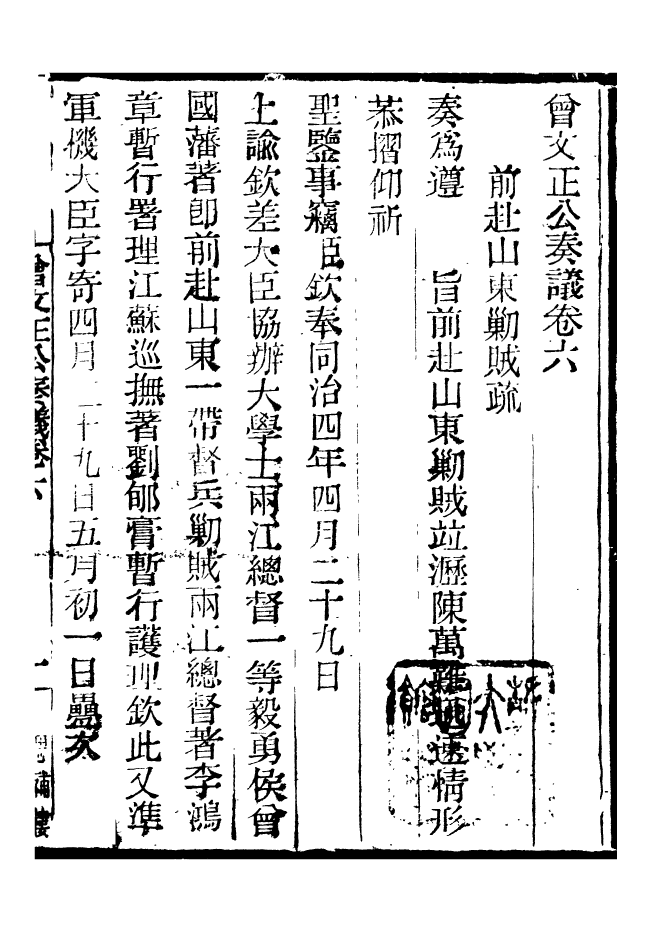 曾文正公奏議卷六
前赴山東勦賊疏
奏爲遵　旨前赴山東勦賊竝瀝陳萬難迅速情形
恭摺仰祈
聖鑒事竊臣欽奉同治四年四月二十九日
上諭欽差大臣協辦大學士兩江總督一等毅勇侯曾
國藩著卽前赴山東一帶督兵勦賊兩江總督著李鴻
章暫行署理江蘇巡撫著劉郇膏暫行護理欽此又準
軍機大臣字寄四月二十九日五月初一日疊次
曾文正公奏議卷六　一